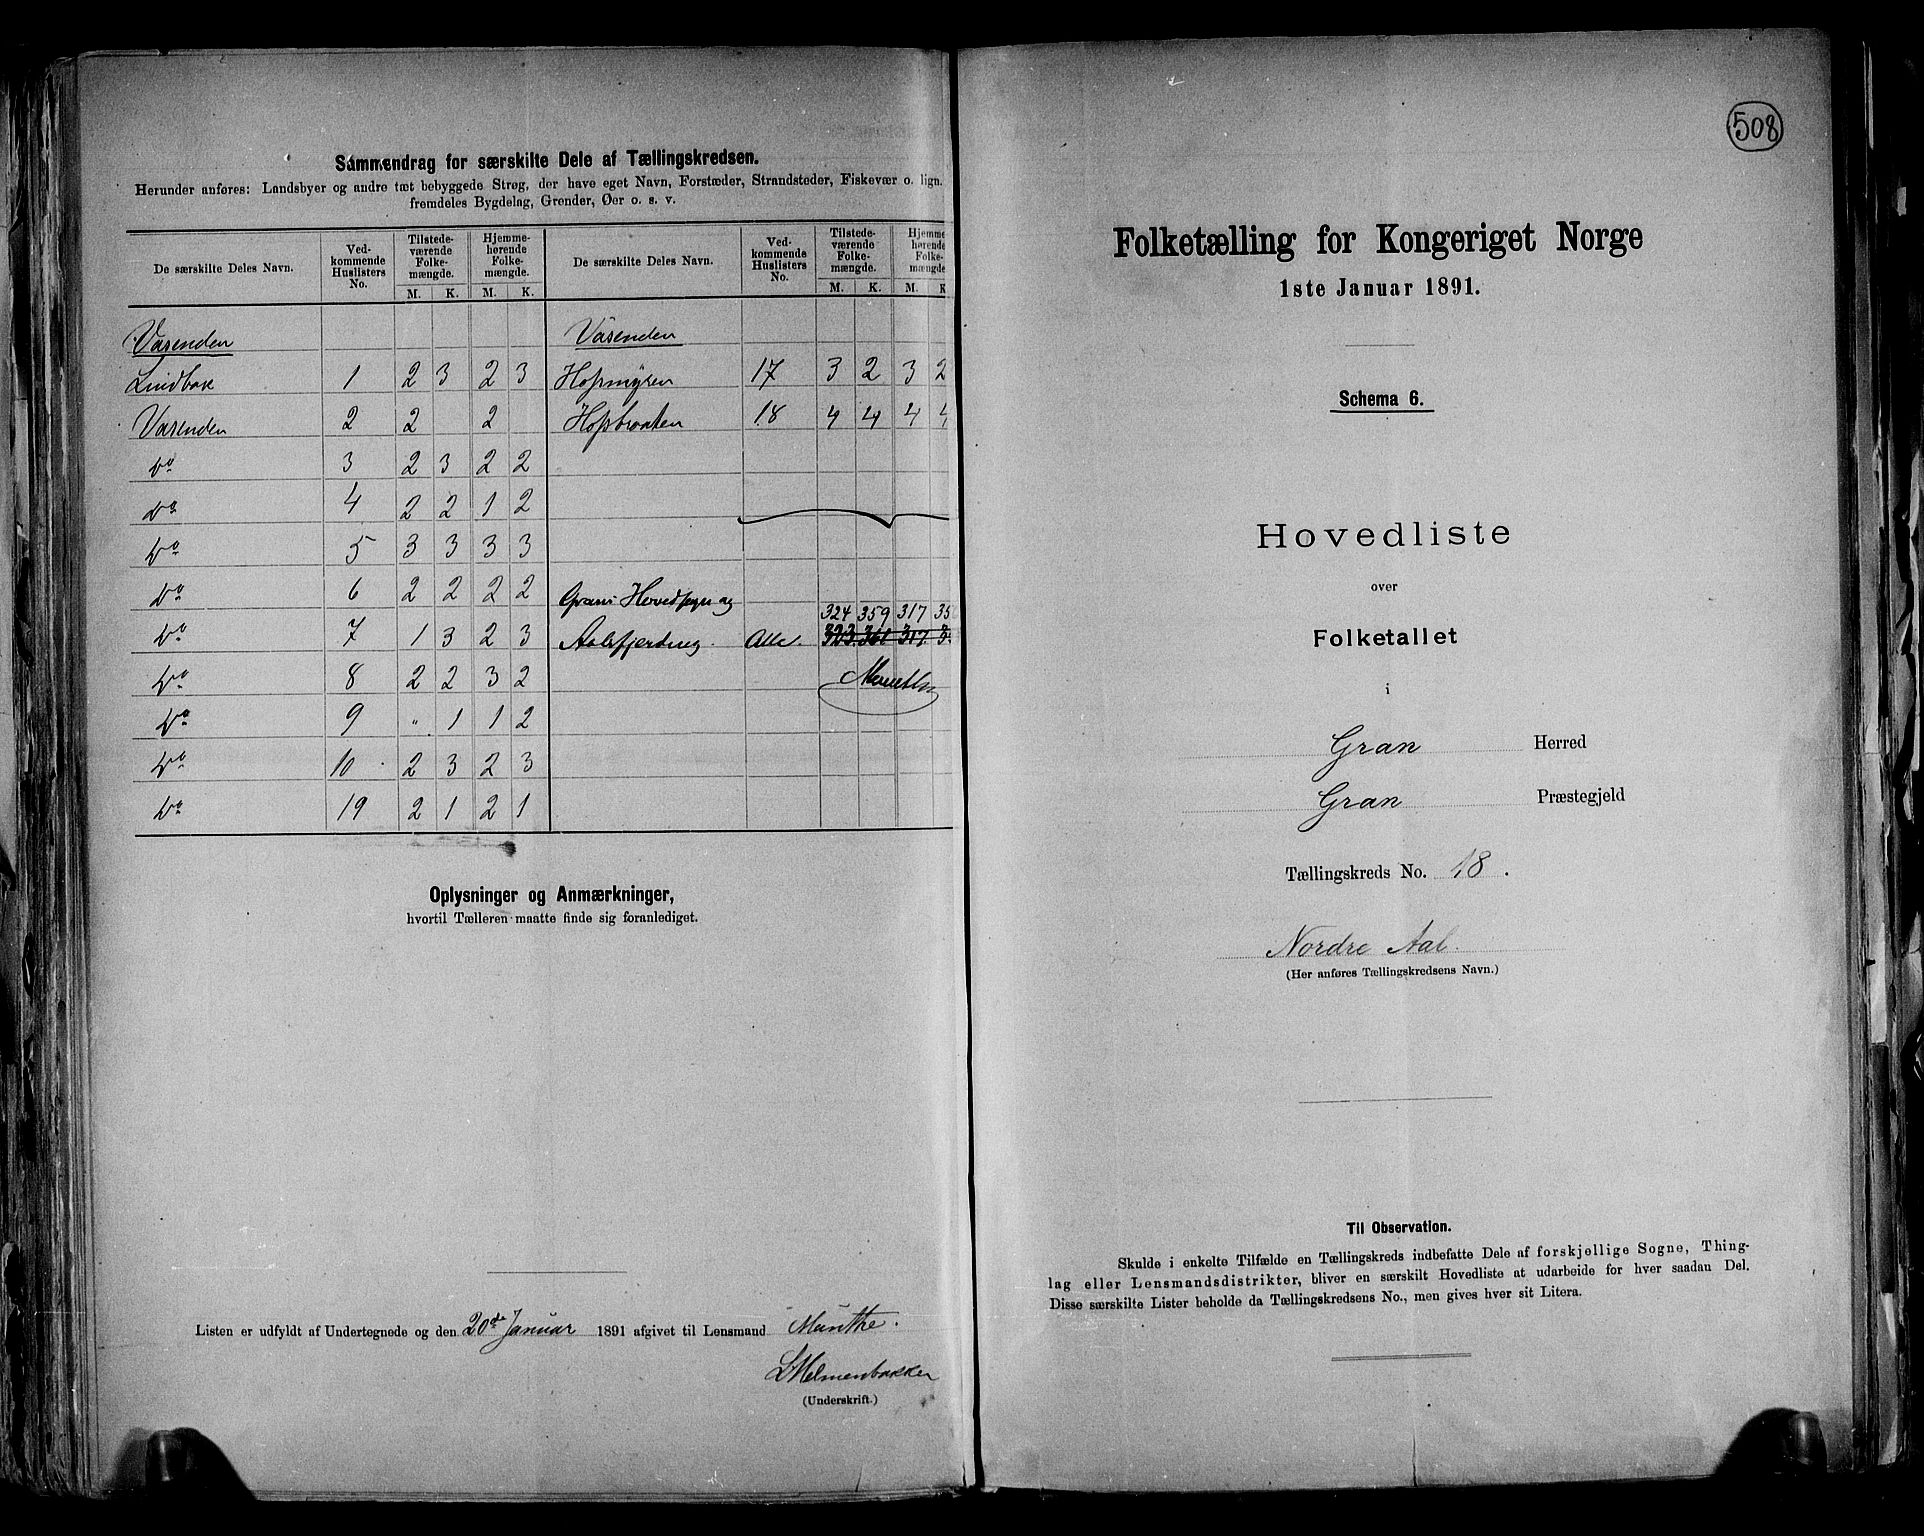 Sammendrag for særskilte Dele af Tællingskredsen.
Herunder anføres: Landsbyer og andre tæt bebyggede Strøg, der have eget Navn, Forstæder, Strandsteder, Fiskevær o. lign.
fremdeles Bygdelag, Grender, Øer o. s. v.
De særskilte Deles Navn. Ved-kommende Huslisters No. Tilstede-værende Folke-mængde. Hjemme-hørende Folke-mængde. De særskilte Deles Navn. Ved-kommende Huslisters No. Tilstede-værende Folke-mængde. Hjemme-hørende Folke-mængde
M. K. M. K. M. K. M. K
Vasenden Vasenden
Lindbak 1 2 3 2 3 Hopmyren 17 3 2 3 2
Vasenden 2 2 2 Hopbraaten 18 4 4 4 4
Do 3 2 3 2 2
Do 4 2 2 1 2
Do 5 3 3 3 3
Do 6 2 2 2 2 Grans Hovedsogn og
324 359 317 35
Do 7 1 3 2 3 Aalsfjerding. Alle. 323. 361 317. 3
Do 8 2 2 3 2 Munthe
Do 9 " 1 1 2
Do 10 2 3 2 3
Do 19 2 1 2 1
Oplysninger og Anmærkninger,
hvortil Tælleren maatte finde sig foranlediget.
Listen er udfyldt af Undertegnede og den 20de Januar 1891 afgivet til Lensmand Munthe.
L Helmenbakken
(Underskrift.)
508
Folketælling for Kongeriget Norge
1ste Januar 1891.
Schema 6.
Hovedliste
over
Folketallet
i
Gran Herred
Gran Præstegjeld
Tællingskreds No. 18.
Nordre Aal.
(Her anføres Tællingskredsens Navn.)
Til Observation.
Skulde i enkelte Tilfælde en Tællingskreds indbefatte Dele af forskjellige Sogne, Thing-
lag eller Lensmandsdistrikter, bliver en særskilt Hovedliste at udarbeide for hver saadan Del.
Disse særskilte Lister beholde da Tællingskredsens No., men gives hver sit Litera.